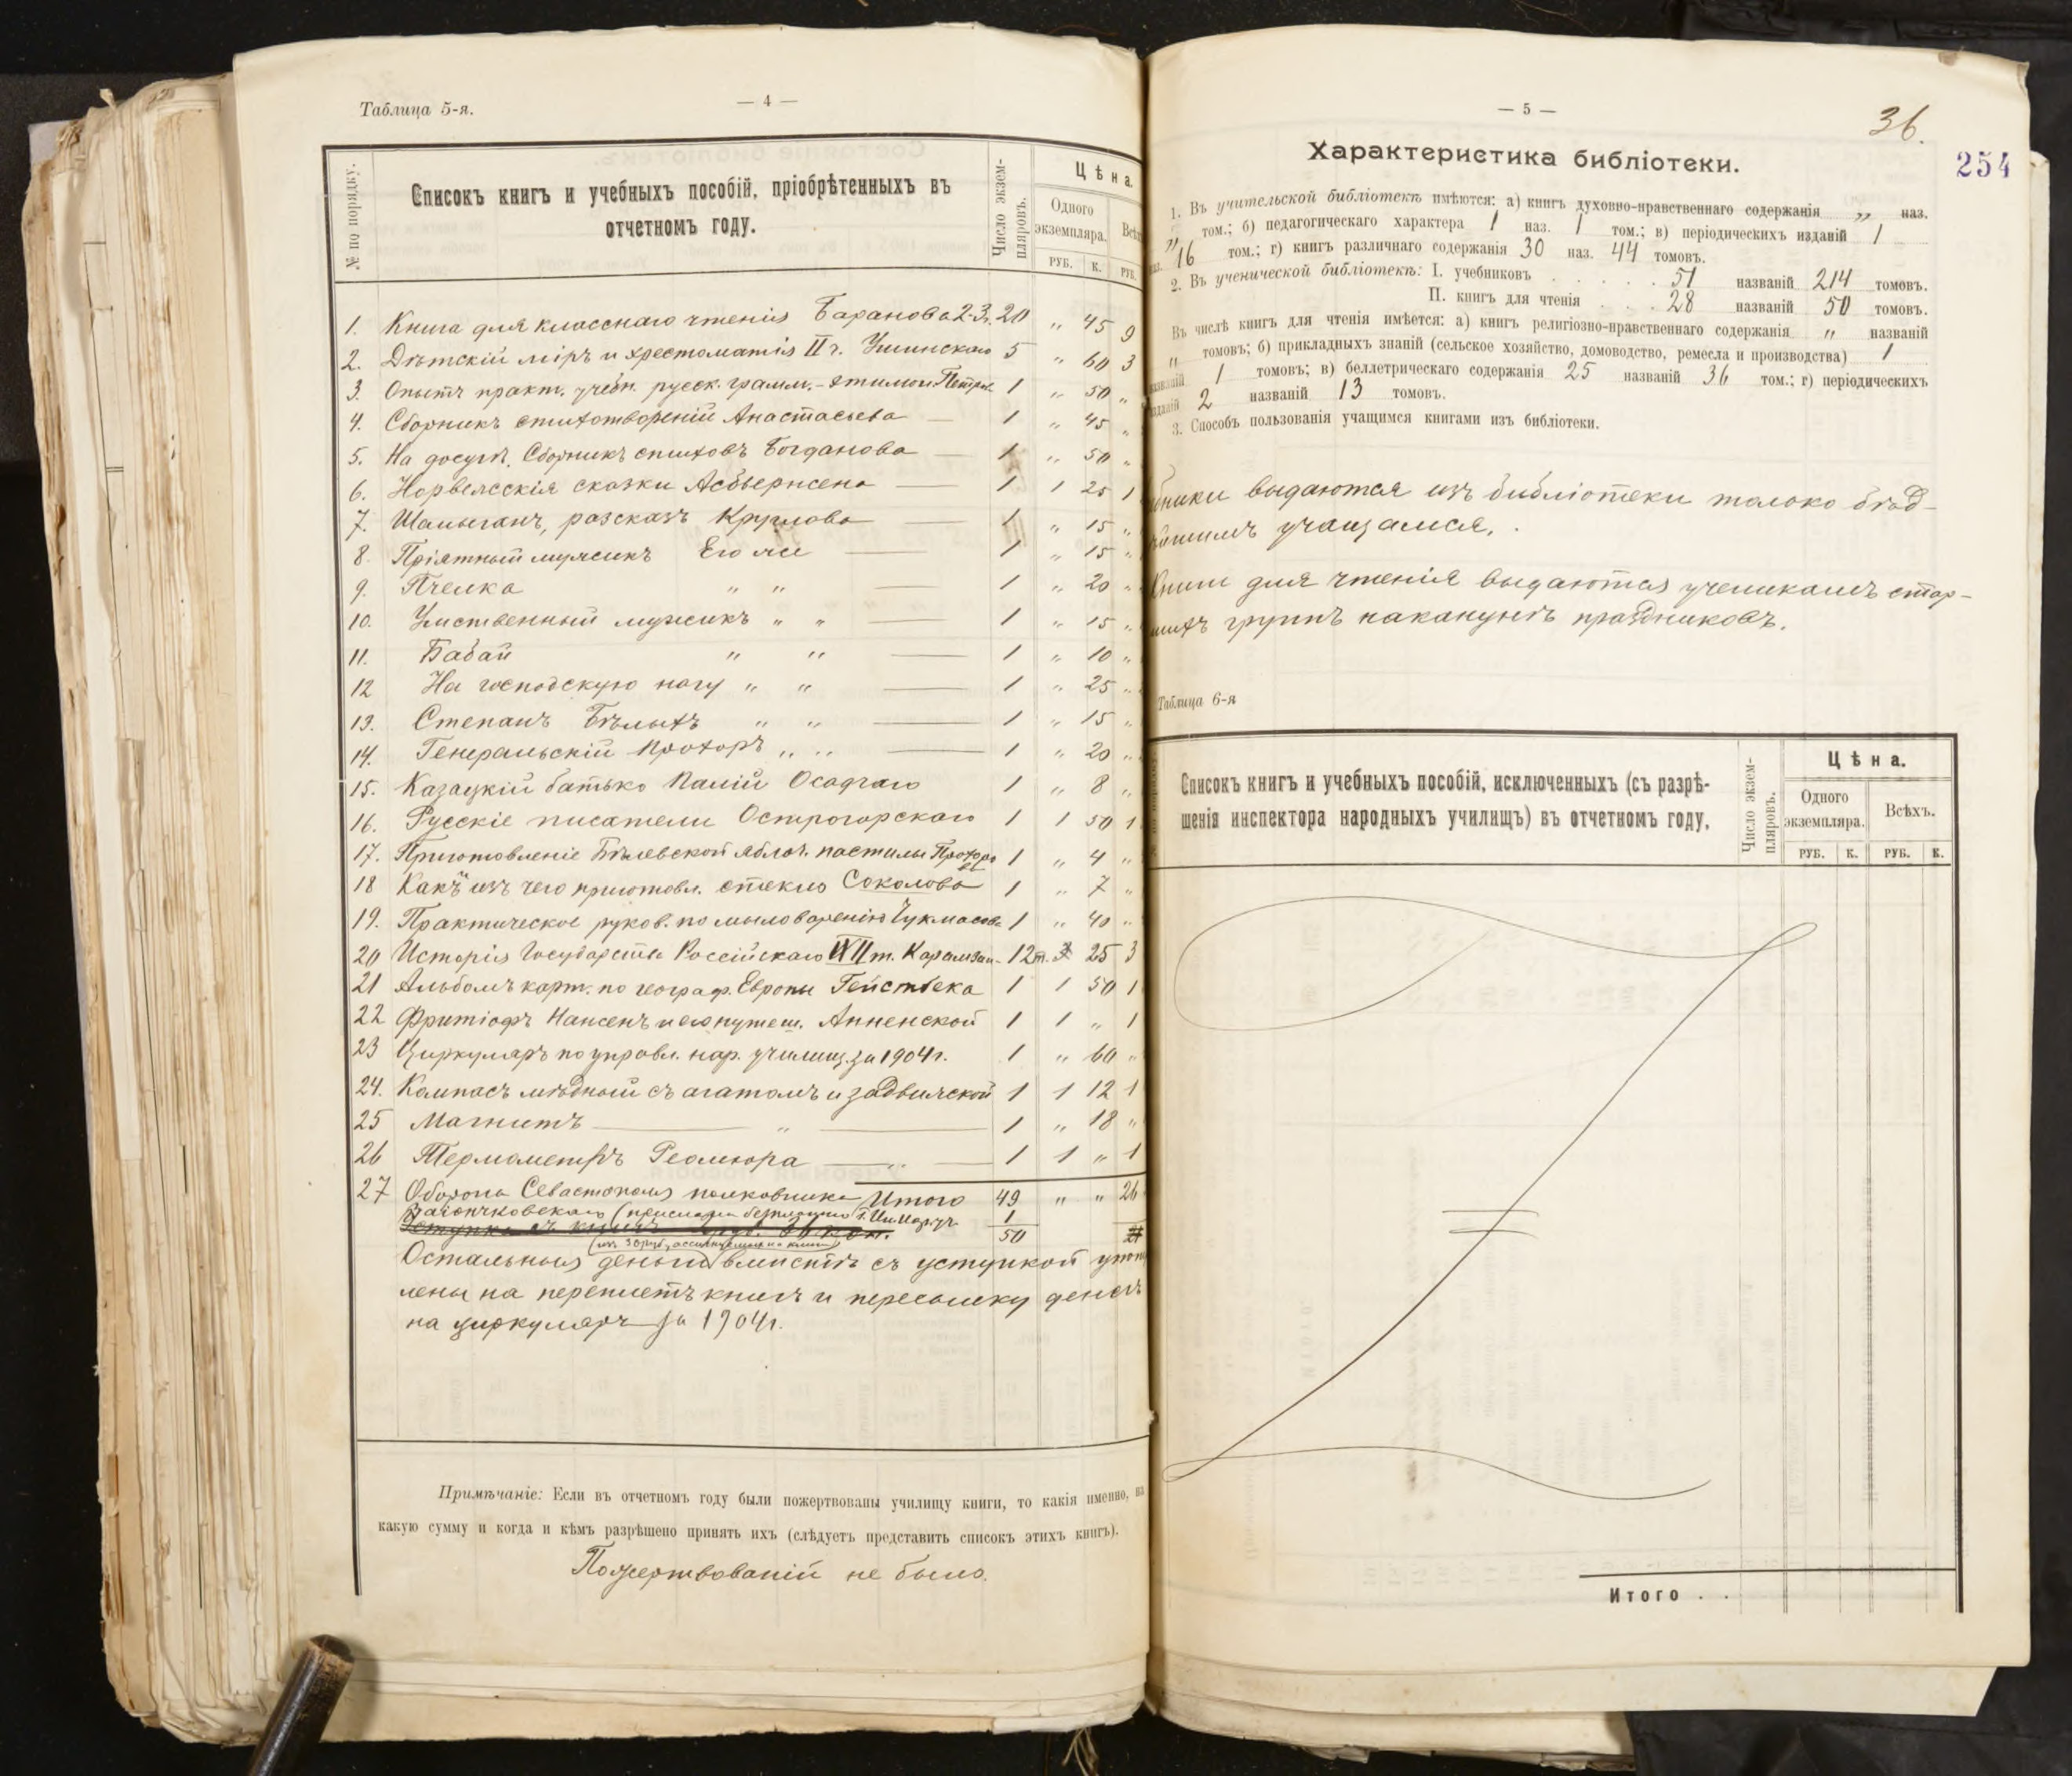 Таблица 5-я.
— 4 —
№ по порядку.
Списокъ книгъ и учебныхъ пособій, пріобрѣтенныхъ въ
отчетномъ году.
Число экзем-
пляровъ.
Цѣна.
Одного
экземпляра.
РУБ. К. РУБ.
1. Книга для класснаго чтенія Баранова 2-3. 20 " 45 9
2. Дѣтскій міръ и хрестоматія II ч. Ушинскаго 5 " 60 3
3. Опытъ практ. учебн. русск. грамм. - этимол. Петров. 1 " 50 "
4. Сборникъ стихотвореній Анастасьева — 1 " 45 "
5. На досугѣ. Сборникъ стиховъ Богданова — 1 " 50 "
6. Норвежскія сказки Асбьернсена — 1 1 25 1
7. Шалыганъ, разсказъ Круглова — 1 " 15 "
8. Пріятный мужикъ Его же — 1 " 15 "
9. Пчелка " " — 1 " 20 "
10. Умственный мужикъ " " — 1 " 15 "
11. Бабай " " — 1 " 10 "
12 На господскую ногу " " — 1 " 25 "
13. Степанъ Бѣлыхъ " " — 1 " 15 "
14. Генеральскій Прохоръ " " — 1 " 20 "
15. Казацкій батько Палій Осадчаго 1 " 8 "
16. Русскіе писатели Острогорскаго 1 1 50 1
17. Приготовленіе Бѣлевской яблоч. пастилы Прохоро 1 " 4 "
ва
18 Какъ и изъ чего приготовл. стекло Соколова 1 " 7 "
19. Практическое руков. по мыловаренію Чукмасова 1 " 40 "
20 Исторія Государства Россійскаго XII т. Карамзин- 12 т. 3 25 3
21 Альбомъ карт. по географ. Европы Гейстбека 1 1 50 1
22 Фритіофъ Нансенъ и его путеш. Анненской 1 1 " 1
23 Циркуляръ по управл. нар. училищ. за 1904 г. 1 " 60 "
24. Компасъ мѣдный съ агатомъ и задвижской 1 1 12 1
25 Магнитъ — " — 1 " 18 "
26 Термометръ Реомюра — " — 1 1 " 1
27 Оборона Севастополя полковника Итого 49 " " 26
Заіончковскаго (прислана безплатно г. Ин. Нар. уч. 1
50 21
(изъ 30 руб., ассигнуемыхъ на книги)
Остальныя деньги вмѣстѣ съ уступкой упот
лены на переплетъ книгъ и пересылку денегъ
на циркуляръ за 1904 г.
Примѣчаніе: Если въ отчетномъ году были пожертвованы училищу книги, то какія именно, на
какую сумму и когда и кѣмъ разрѣшено принять ихъ (слѣдуетъ представить списокъ этихъ книгъ).
Пожертвованій не было.
— 5 —
36.
254
Характеристика библіотеки.
1. Въ учительской библіотекѣ имѣются: а) книгъ духовно-нравственнаго содержанія " наз.
" том.; б) педагогическаго характера 1 наз. 1 том.; в) періодическихъ изданій 1
наз. 16 том.; г) книгъ различнаго содержанія 30 наз. 44 томовъ.
2. Въ ученической библіотекѣ: I. учебниковъ . . . . . 51 названій 214 томовъ.
II. книгъ для чтенія . . . 28 названій 50 томовъ.
Въ числѣ книгъ для чтенія имѣется: а) книгъ религіозно-нравственнаго содержанія " названій
" томовъ; б) прикладныхъ знаній (сельское хозяйство, домоводство, ремесла и производства) 1
названій 1 томовъ; в) беллетрическаго содержанія 25 названій 36 том.; г) періодическихъ
изданій 2 названій 13 томовъ.
3. Способъ пользованія учащимся книгами изъ библіотеки.
бники выдаются изъ библіотеки только бѣд-
нѣйшимъ учащимся.
Книги для чтенія выдаются ученикамъ стар-
шихъ группъ наканунѣ праздниковъ.
Таблица 6-я
Списокъ книгъ и учебныхъ пособій, исключенныхъ (съ разрѣ-
шенія инспектора народныхъ училищъ) въ отчетномъ году.
Число экзем-
пляровъ.
Цѣна.
Одного
экземпляра.
Всѣхъ.
РУБ. К. РУБ. К.
Итого . .